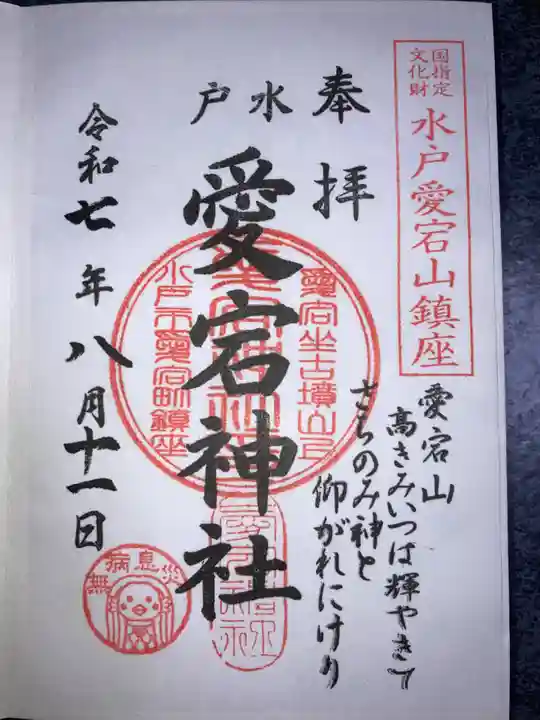 国指定
文化財
水戸愛宕山鎮座
奉拝
水戸
愛宕神社
令和七年八月十一日
愛宕山
高きみいつは輝やきて
さちのみ神と
仰がれにけり
愛宕坐古墳山上
水戸市愛宕町鎮座
無病息災